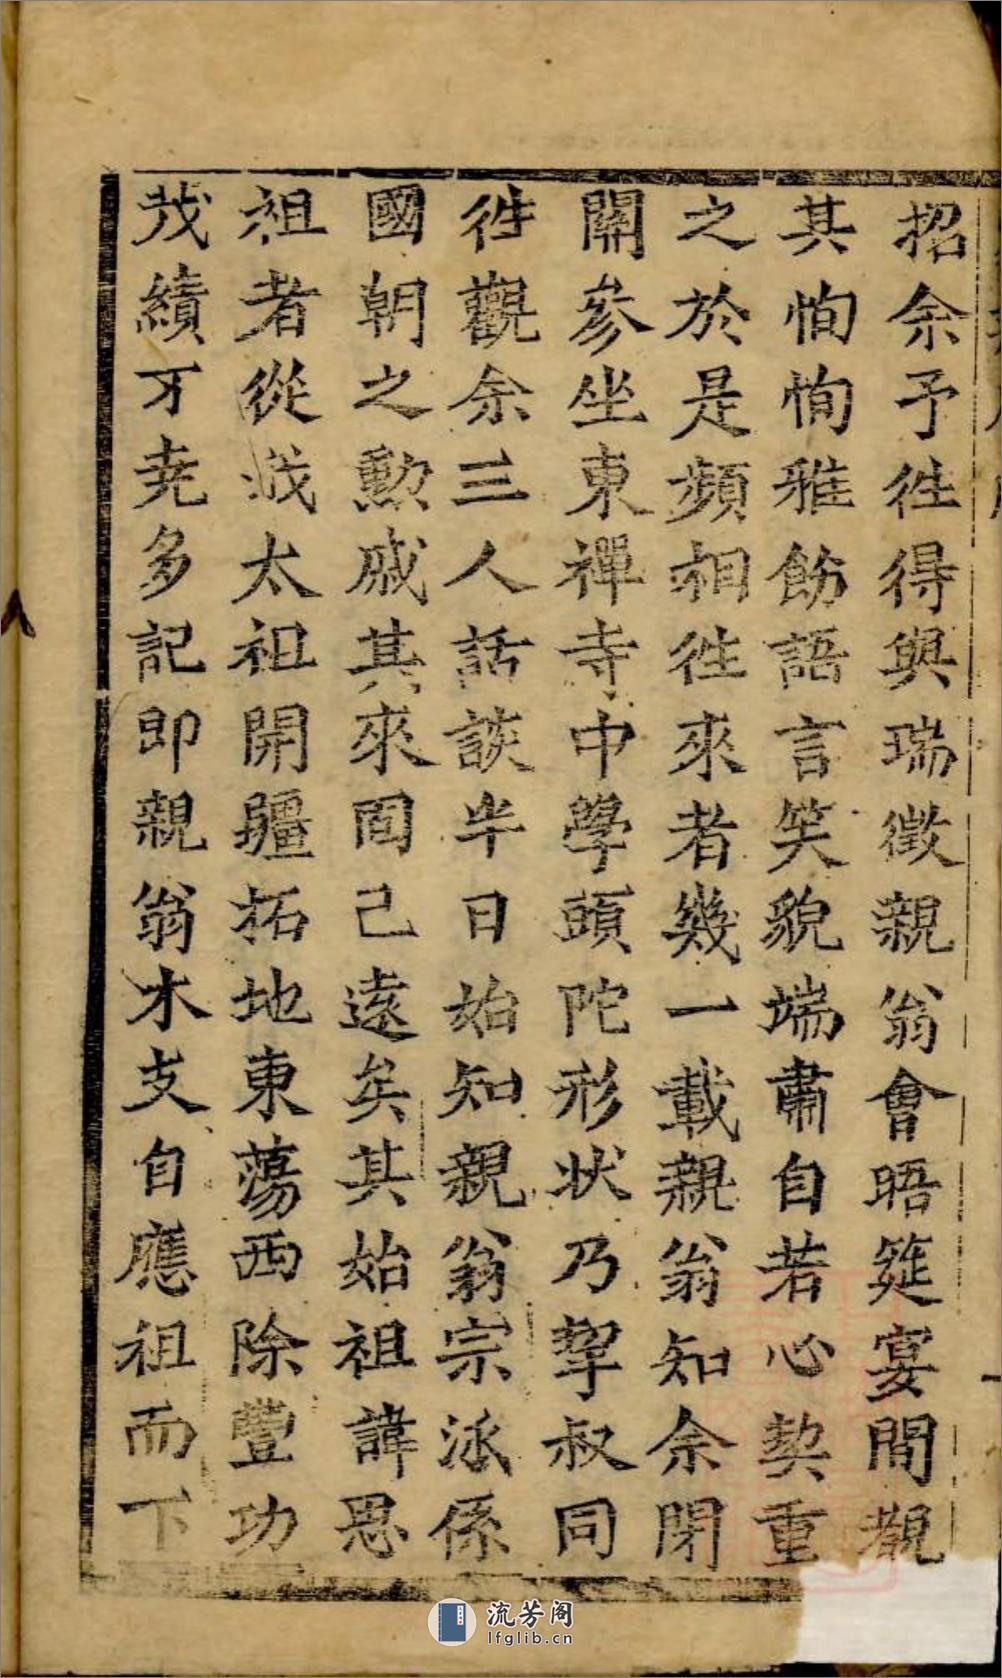 招余予徃得與瑞徵親翁會晤筵宴間觀
其恂恂雅飭語言笑貌端肅自若心契重
之於是頻相徃來者幾一載親翁知余閉
關參坐東禪寺中學頭陀形狀乃挈叔同
徃觀余三人話談半日始知親翁宗泒係
國朝之勲戚其來固己遠矣其始祖諱恩
祖者從我太祖開疆拓地東蕩西除豐功
茂績不克多記即親翁木支自應祖而下
流芳阁
lfglib.cn